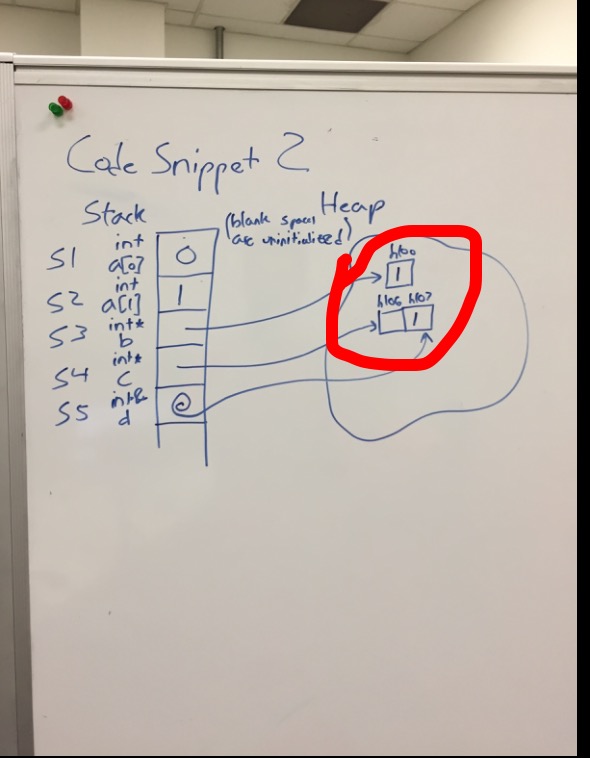 Code Snippet 2
Stack
(blank spaces are uninitialized)
Heap
S1 int a[0] 0
S2 int a[1] 1
S3 int* b
S4 int* c
S5 int& d @
h100
1
h106 h107
1